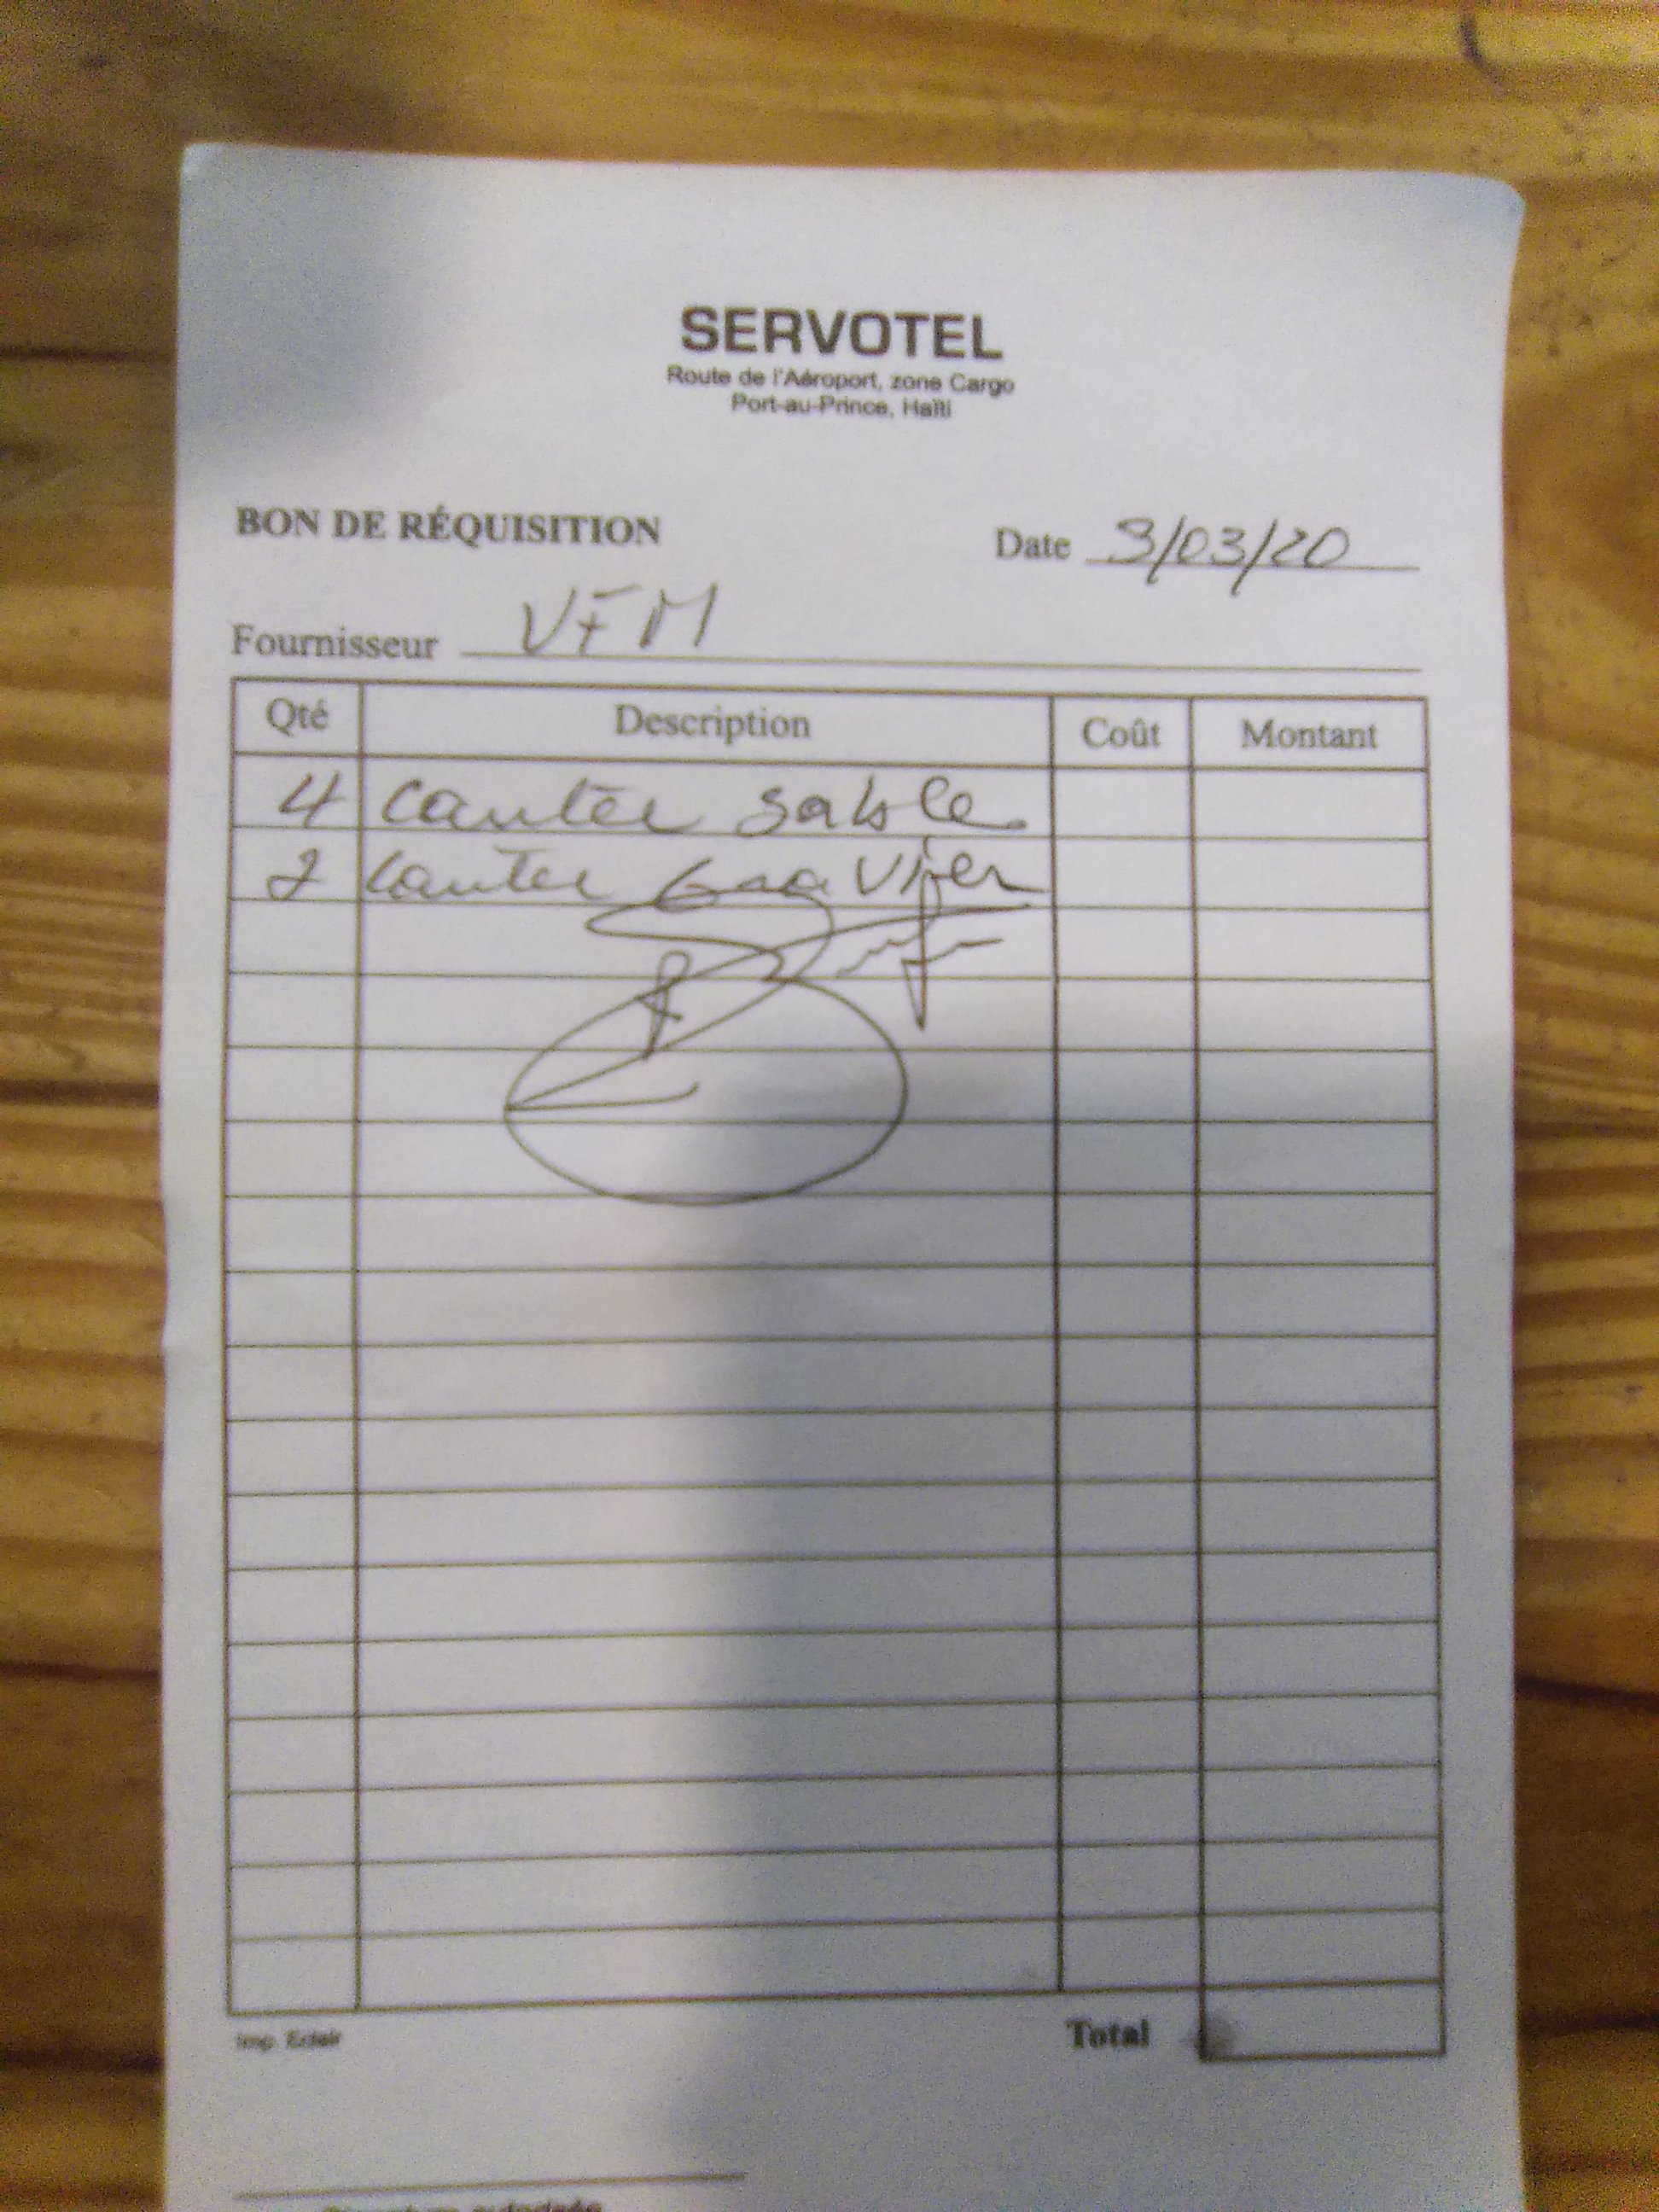 SERVOTEL
Route de l'Aéroport, zone Cargo
Port-au-Prince, Haïti
BON DE RÉQUISITION Date 3/03/20
Fournisseur VFM
Qté Description Coût Montant
4 Canter Sable
2 Canter Gravier
Imp. Eclair Total
Signature autorisée